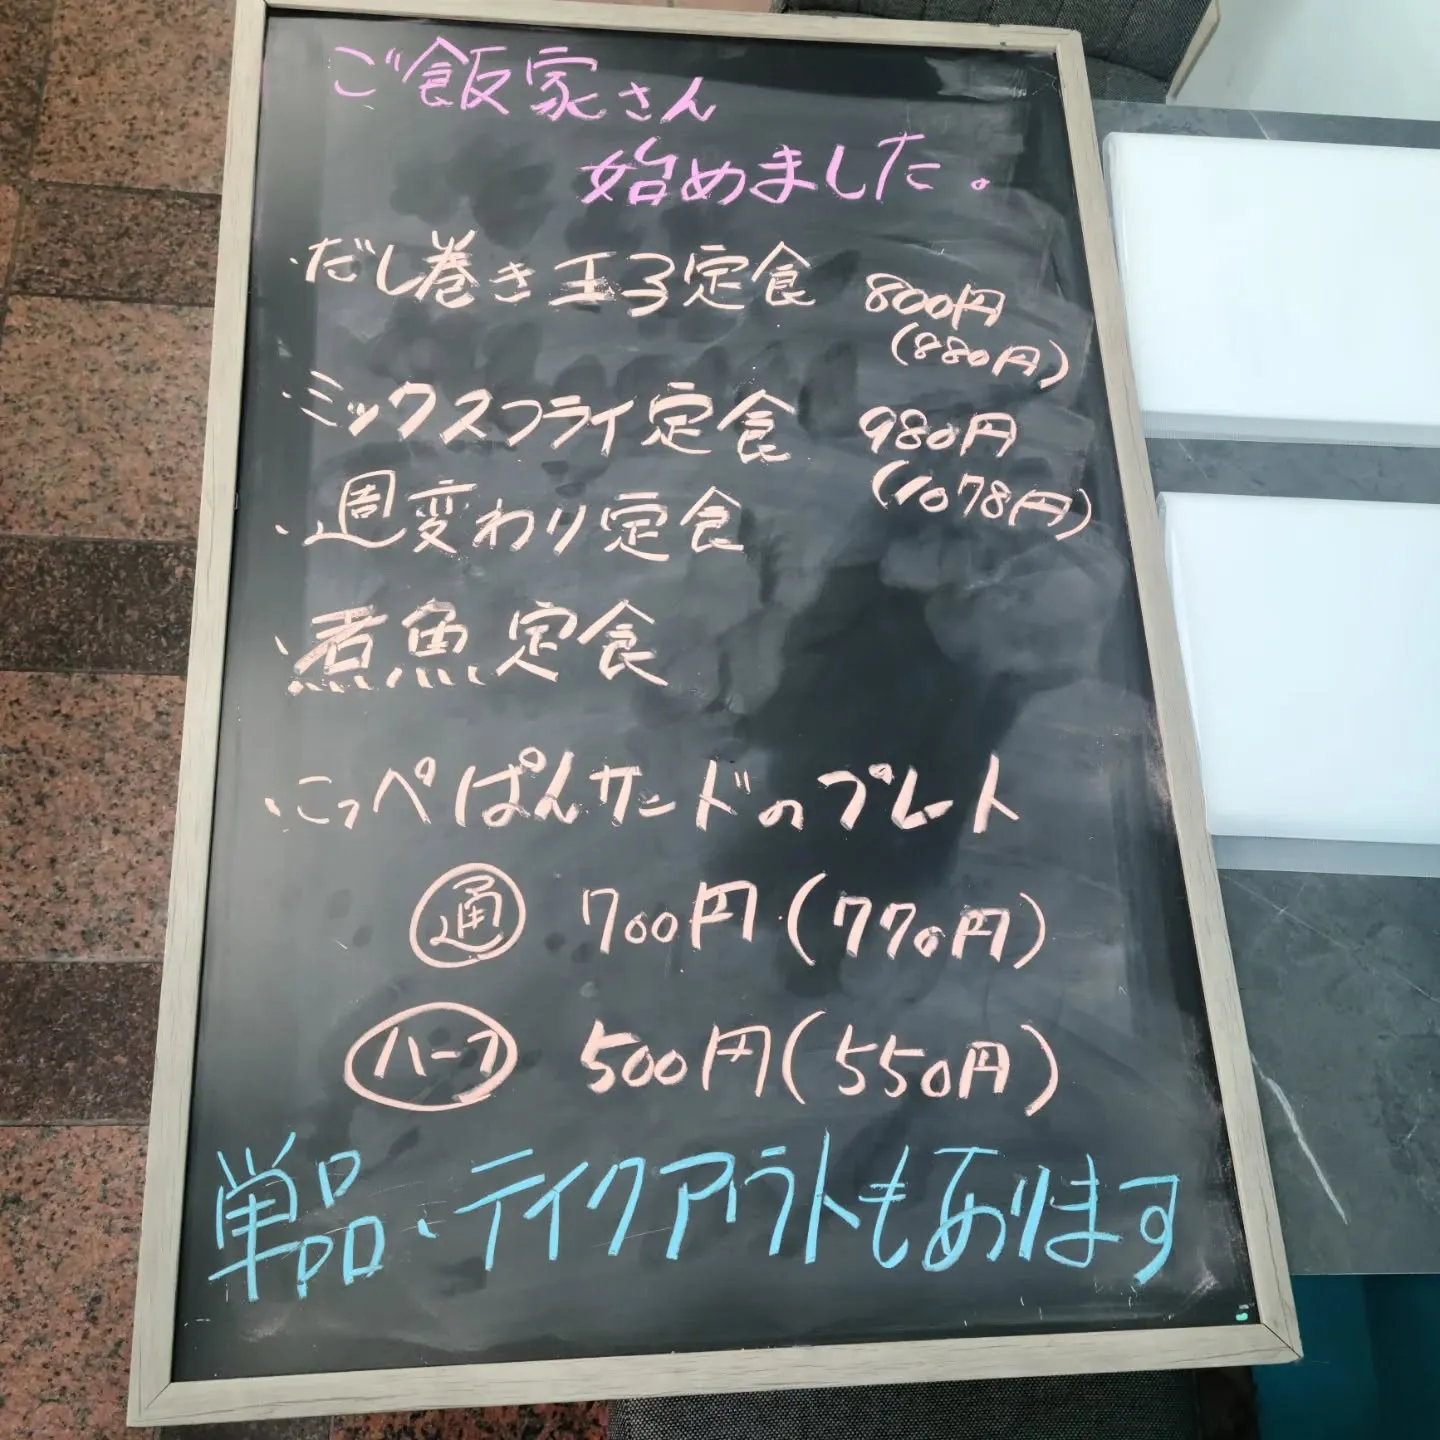 ご飯家さん
始めました。
・だし巻き玉子定食 800円
(880円)
・ミックスフライ定食 980円
(1078円)
・週変わり定食
・煮魚定食
・こっぺぱんサンドのプレート
通 700円(770円)
ハーフ 500円(550円)
単品・テイクアウトもあります